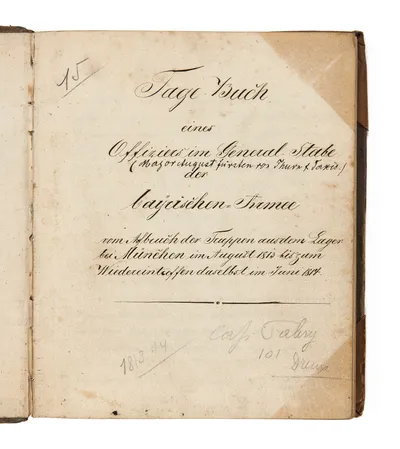 15
Tage Buch
eines
Offiziers im General-Stabe
(Major August Fürsten von Thurn & Taxis.)
der
bayrischen-Armee
vom Aufbruch der Truppen aus dem Lager
bei München im August 1813 bis zum
Wiedereintreffen daselbst im Juni 1814.
101